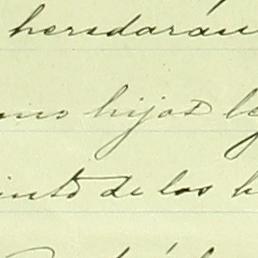 heredarán
mo hijos le
into de los h